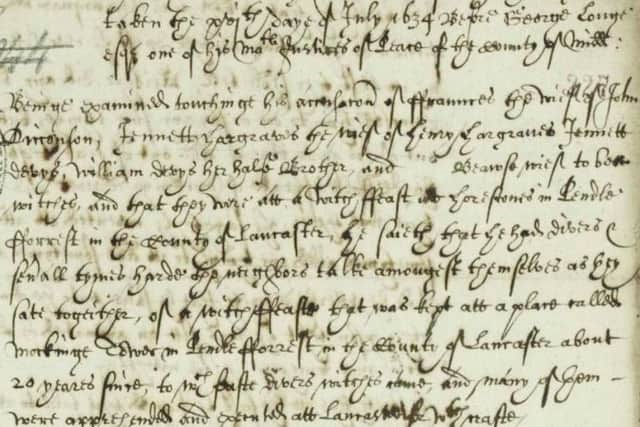 taken the xvith daye of July 1634 Before George Longe
esqr one of his Mats Justices of Peace of the County of Midd:
Beinge examined touchinge his accusacon of ffraunces the wief of John
Dicconson, Jennett Hargraves the wief of Henry Hargraves Jennett
Devys, William Devys her halfe Brother, and Beawse wief to bee
witches, and that they were att a witch ffeast att Horestones in Pendle
fforrest in the County of Lancaster, he saieth that he had divers &
seuall tymes harde the neighbors talke amongest themselves as they
sate togeither, of a witch ffeaste that was kept att a place called
Mockinge Tower in Pendle fforrest in the County of Lancaster about
20 yeares since, to wch feaste divers witches came, and many of them
were apprehended and executed att Lancaster for witchcrafte